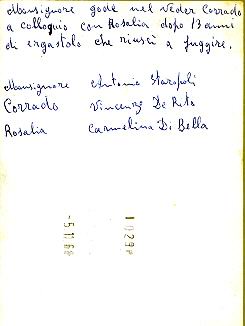 Monsignore gode nel veder Corrado
a colloquio con Rosalia dopo 13 anni
di ergastolo che riuscì a fuggire.
Monsignore Antonio Staropoli
Corrado Vincenzo De Rito
Rosalia Carmelina Di Bella